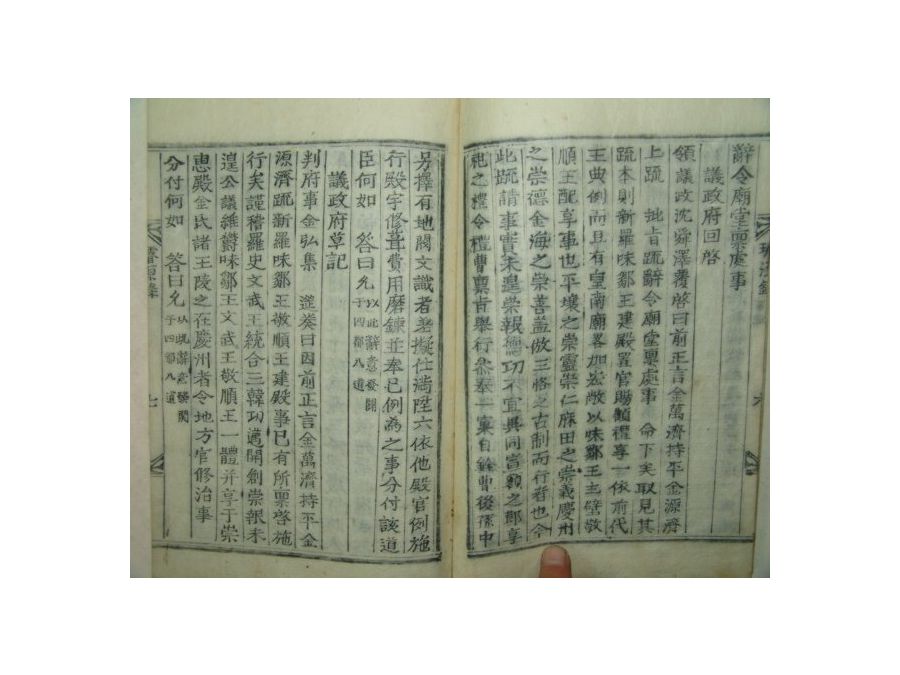 辭令廟堂稟處事
議政府回啓
領議政沈舜澤覆啓曰前正言金萬濟持平金源濟
上疏 批旨疏辭令廟堂稟處事 命下矣取見其
疏本則新羅味鄒王建殿置官賜額禮享一依前代
王典例而且有皇南廟畧加宏敞以味鄒王主壁敬
順王配享事也平壤之崇靈崇仁麻田之崇義慶州
之崇德金海之崇善盖倣三恪之古制而行者也今
此疏請事實未遑崇報德功不宜異同宣額之節享
祀之禮令禮曹稟旨擧行
另擇有地閥文識者差擬仕滿陞六依他殿官例施
行殿宇修葺費用磨鍊並奉已例為之事分付該道
臣何如 答曰允 以此辭意發關于四都八道
議政府草記
判府事金弘集 筵奏曰因前正言金萬濟持平金
源濟疏新羅味鄒王敬順王建殿事已有所稟啓施
行矣謹稽羅史文武王統合三韓功邁開創崇報未
遑公議維欝味鄒王文武王敬順王一體并享于崇
惠殿金氏諸王陵之在慶州者令地方官修治事
分付何如 答曰允 以此辭意發關于四都八道
七
六